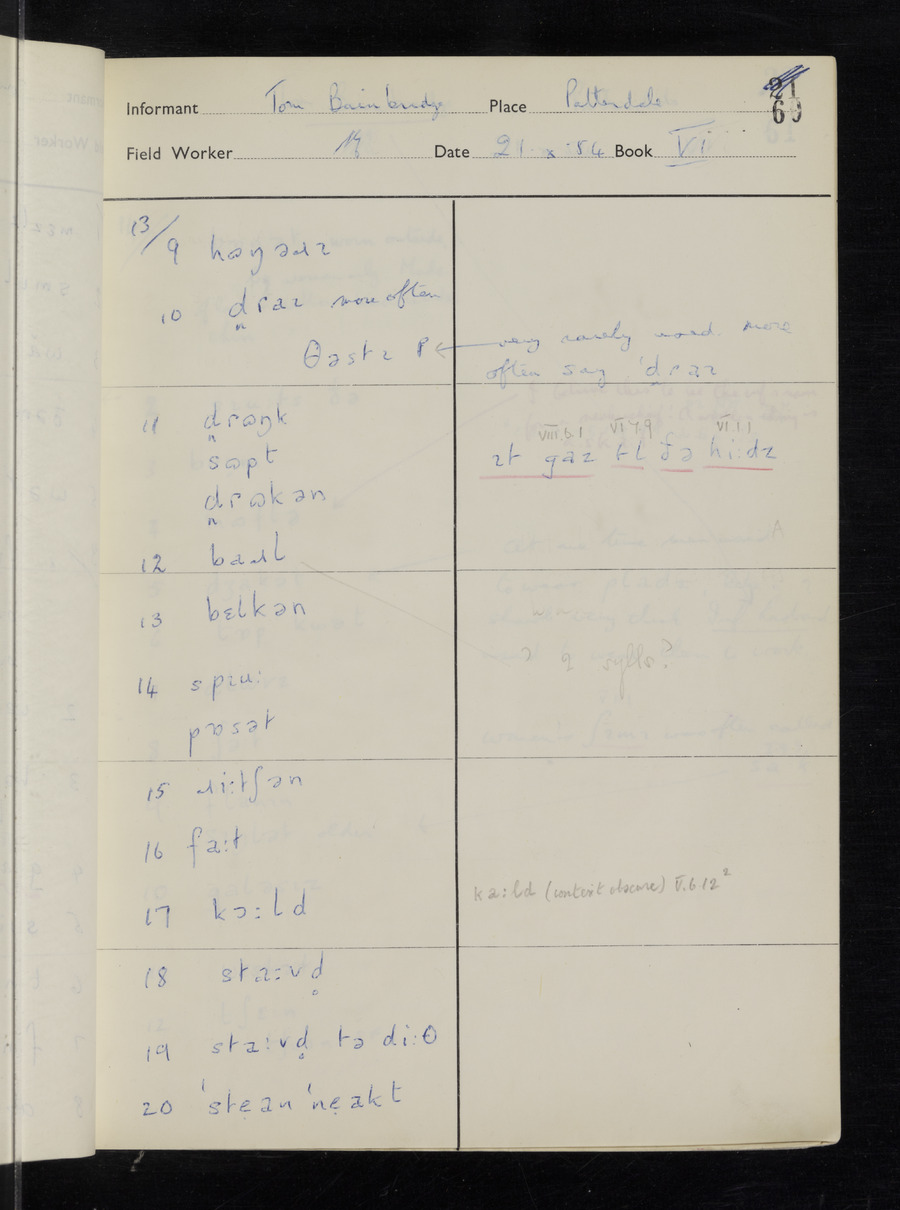 Informant Tom Bainbridge Place Patterdale
21
60
Field Worker Date 21 · x · 54 Book VI
13/
9
10 d̪raɪ more often
θəstɪ P ← very rarely used. more
often say 'd̪raɪ
11 d̪rɷŋk
sɷpt
d̪rɷkən
VIII.6.1 VI.7.9 VI.1.1
ɪt gaz tl ðə hi:dz
12 baɹl
13 bɛlkən
2 sylls?
14 spɪu:
pɷsət
15 ɹi:tʃən
16 fa:t
17 kɔ:ld
ka:ld (context obscure) V.6.12²
18 sta:vd̥
19 sta:vd̥ tə di:θ
20 ˈstẹan ˈnẹakt